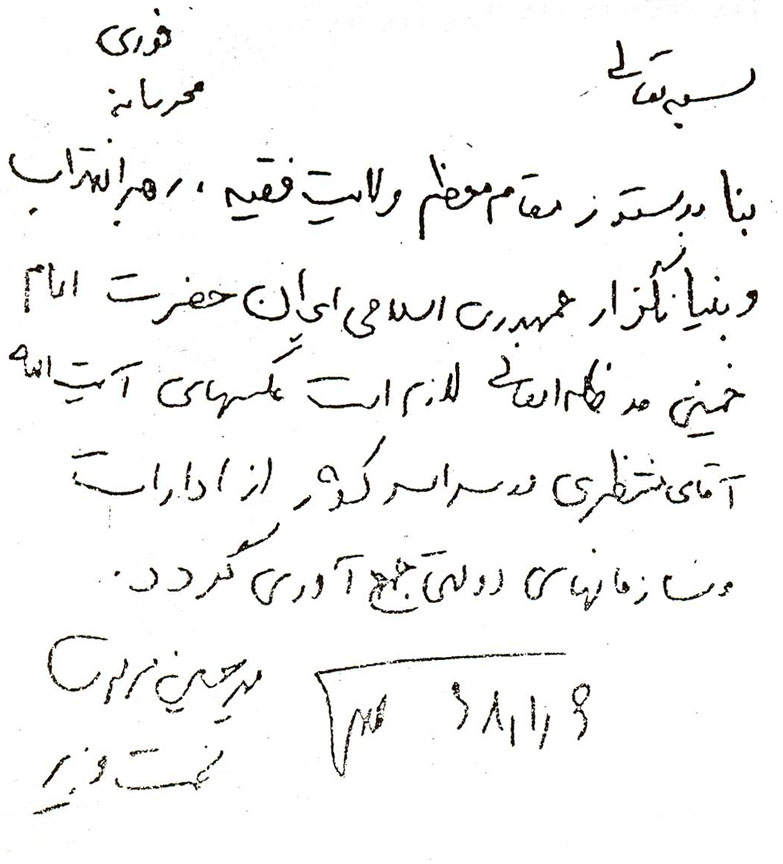 بسمه تعالی
فوری
محرمانه
بنا بدستور مقام معظم ولایت فقیه ، رهبر انقلاب
و بنیانگزار جمهوری اسلامی ایران حضرت امام
خمینی مد ظله العالی لازم است عکسهای آیت الله
آقای منتظری در سراسر کشور از ادارات
و سازمانهای دولتی جمع آوری گردد.
میرحسین موسوی
نخست وزیر
۶۸,۱,۶